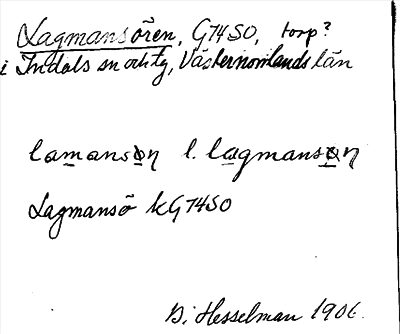 Lagmansören, G74SO, torp?
i Indals sn och tg, Västernorrlands län
lamansǫη l. lagmansǫη
Lagmansö kG74SO
B. Hesselman 1906.